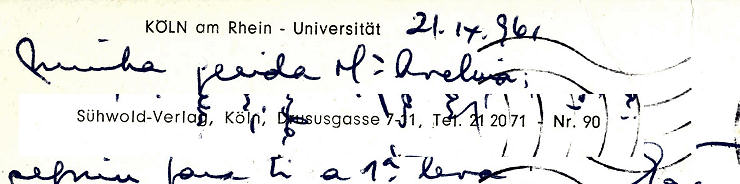 KÖLN am Rhein - Universität 21.IX.96,
Minha querida Mª Avelina,
Sühwold-Verlag, Köln, Drususgasse 7-11, Tel. 21 20 71 - Nr. 90
para ti a 1ª leva